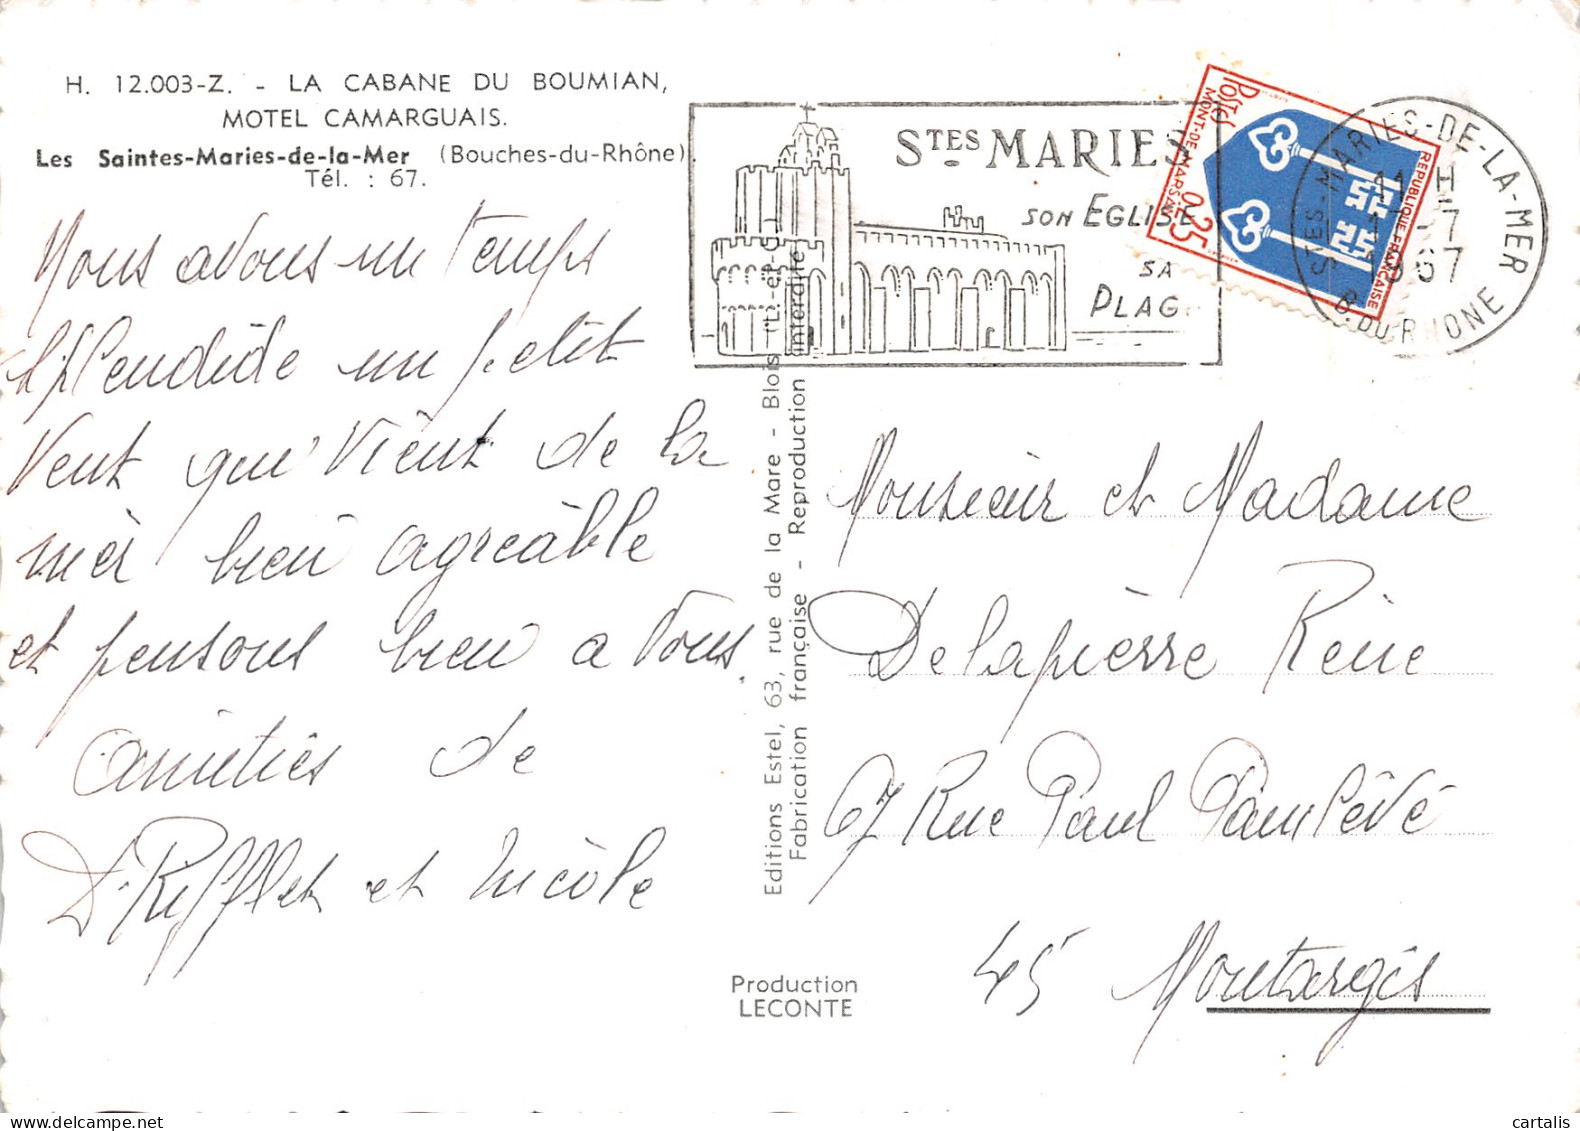 H. 12.003-Z. - LA CABANE DU BOUMIAN,
MOTEL CAMARGUAIS.
Les Saintes-Maries-de-la-Mer (Bouches-du-Rhône).
Tél. : 67.
Nous avons un temps
splendide un petit
vent qui vient de la
mer bien agréable
et pensons bien a vous
amitiés de
D. Rifflet et Nicole
STES MARIES
SON EGLISE
SA
PLAG
POSTES
MONT-DE-MARSAN
0,25
REPUBLIQUE FRANÇAISE
STES-MARIES-DE-LA-MER
11 H
-7
1967
B. DU RHONE
Editions Estel, 63, rue de la Mare - Blois (L.-et-C.)
Fabrication française - Reproduction interdite
Production
LECONTE
Monsieur et Madame
Delapierre Réne
67 Rue Paul Painlévé
45 Montargis
cartalis